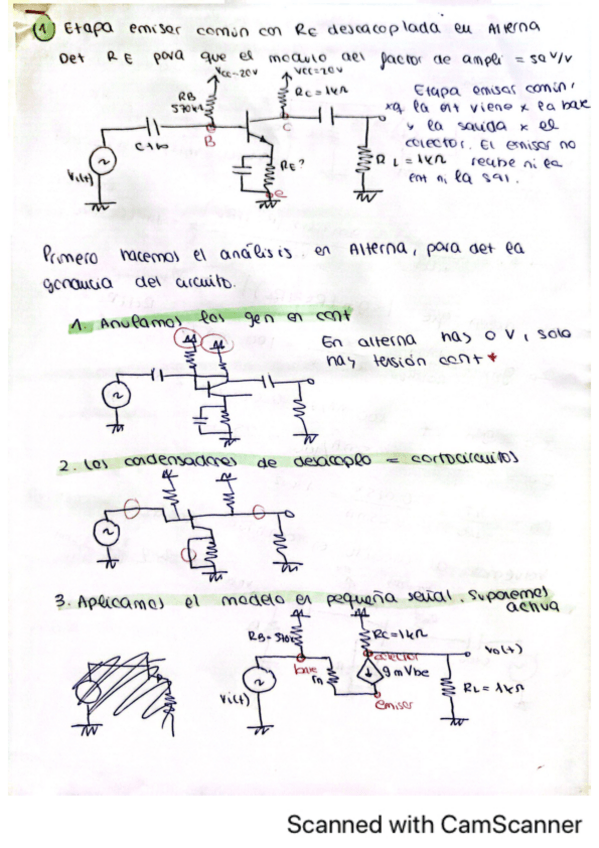 1 Etapa emisor común con RE desacoplada en Alterna
Det RE para que el modulo del factor de ampli = 50 V/V
Vcc=20V
Vcc=20V
RB
RC=1kΩ
C→∞
B
C
RE?
e
RL=1kΩ
Vi(t)
Etapa emisor comun,
xq la ent viene x la base
y la salida x el
colector. El emisor no
recibe ni la
ent ni la sal.
Primero hacemos el análisis en Alterna, para det la
ganancia del circuito.
1. Anulamos los gen en cont
En alterna hay 0 V, solo
hay tensión cont *
2. Los condensadores de desacoplo = cortocircuitos
3. Aplicamos el modelo en pequeña señal. Suponemos
activa
RB=570k
RC=1kΩ
base
colector
Vo(t)
rπ
gmVbe
Vi(t)
emisor
RL=1kΩ
Scanned with CamScanner